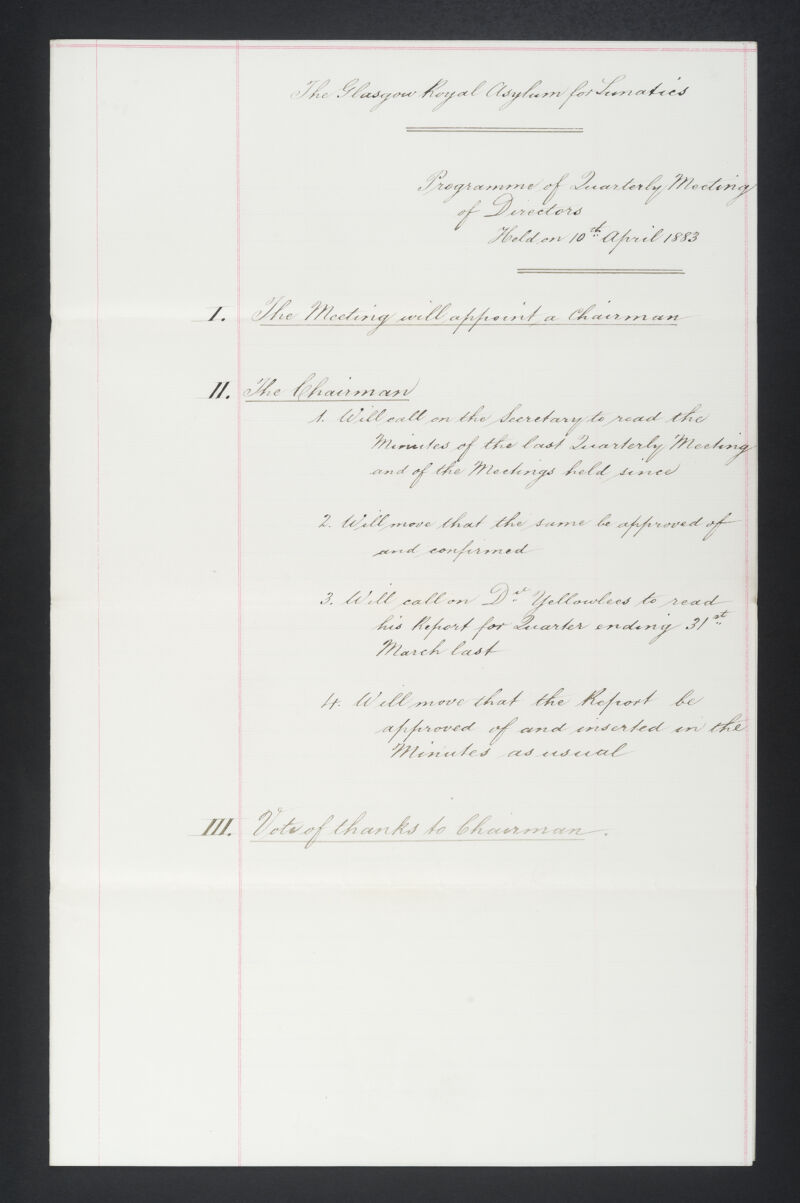 The Glasgow Royal Asylum for Lunatics
Programme of Quarterly Meeting
of Directors
Held on 10th April 1883
I. The Meeting will appoint a Chairman
II. The Chairman
1. Will call on the Secretary to read the
Minutes of the last Quarterly Meeting
and of the Meetings held since
2. Will move that the same be approved of
and confirmed
3. Will call on Dr. Yellowlees to read
his Report for Quarter ending 31st
March last
4. Will move that the Report be
approved of and inserted in the
Minutes as usual
III. Vote of thanks to Chairman.